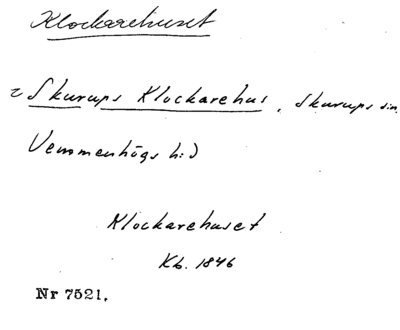 Klockarehuset
= Skurups Klockarehus, Skurups sn,
Vemmenhögs h:d
Klockarehuset
Kb. 1846
Nr 7521.